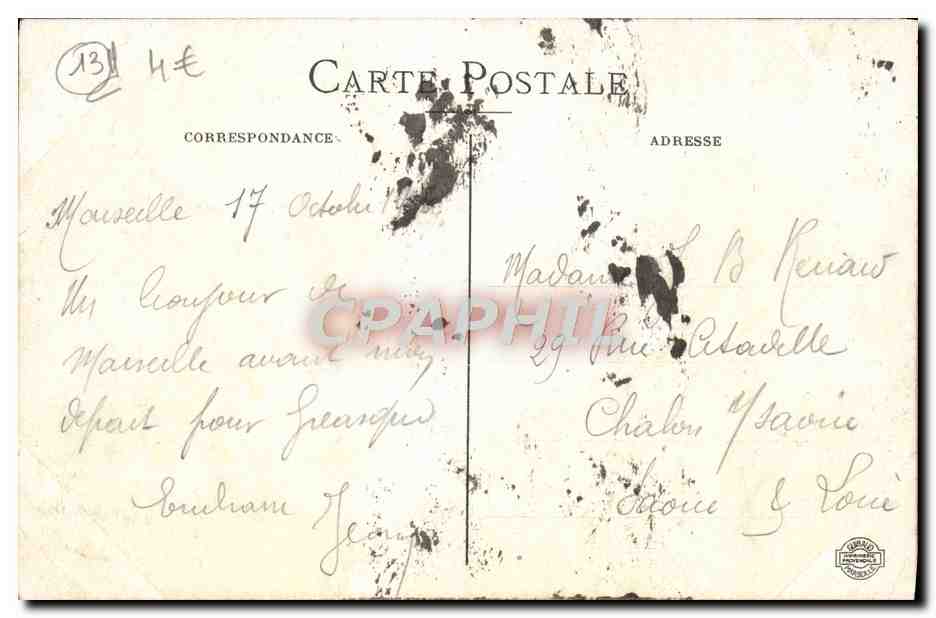 13 4€
CARTE POSTALE
CORRESPONDANCE
ADRESSE
Marseille 17 Octobre
Un bonjour de
Marseille avant mon
départ pour Gréasque
Jeany
Madame J B Renard
29 Rue Citadelle
Chalon s/ Saône
Saône & Loire
CPAPHIL
IMPRIMERIE
PROVENCALE
MARSEILLE